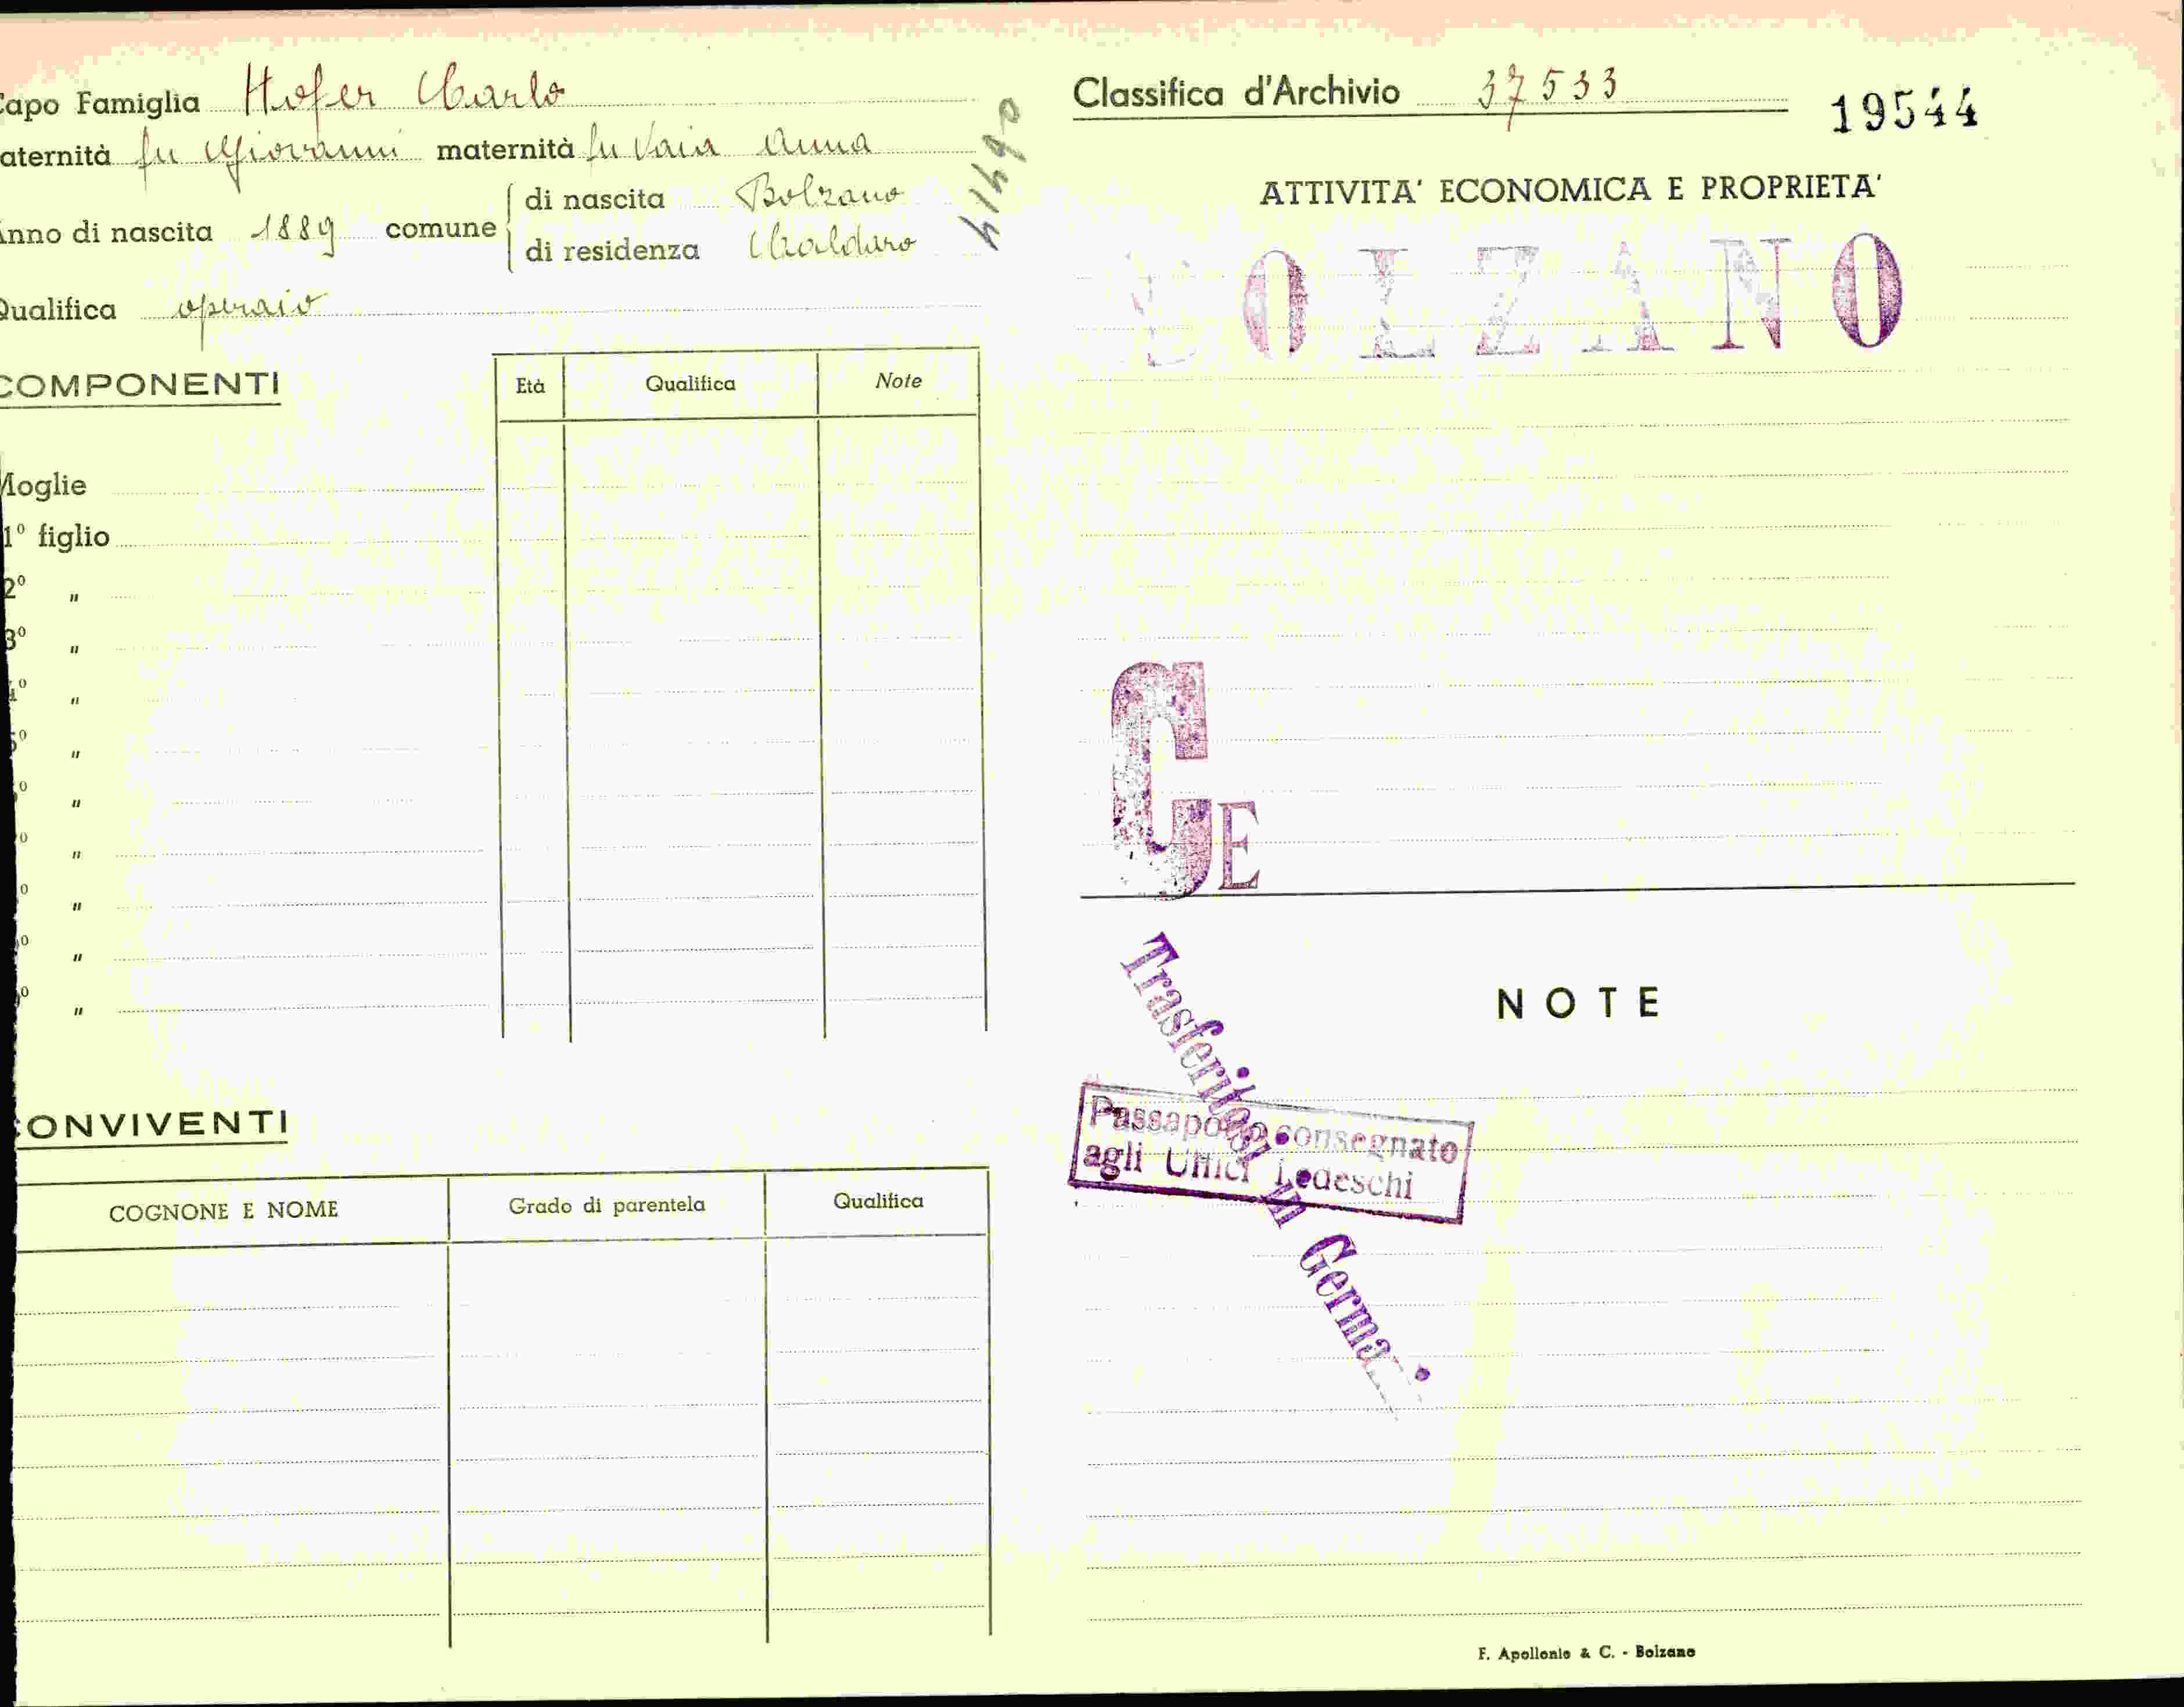 Capo Famiglia Hofer Carlo
aternità fu Giovanni maternità fu Vaia Anna
Anno di nascita 1889 comune di nascita Bolzano
di residenza Caldaro
Qualifica operaio
COMPONENTI
Età Qualifica Note
Moglie
1° figlio
2° "
3° "
4° "
5° "
° "
° "
° "
° "
° "
CONVIVENTI
COGNONE E NOME Grado di parentela Qualifica
Classifica d'Archivio 37533
19544
ATTIVITA' ECONOMICA E PROPRIETA'
BOLZANO
G E
NOTE
Trasferitosi in Germa
Passaporto consegnato
agli Uffici Tedeschi
F. Apollonio & C. - Bolzano